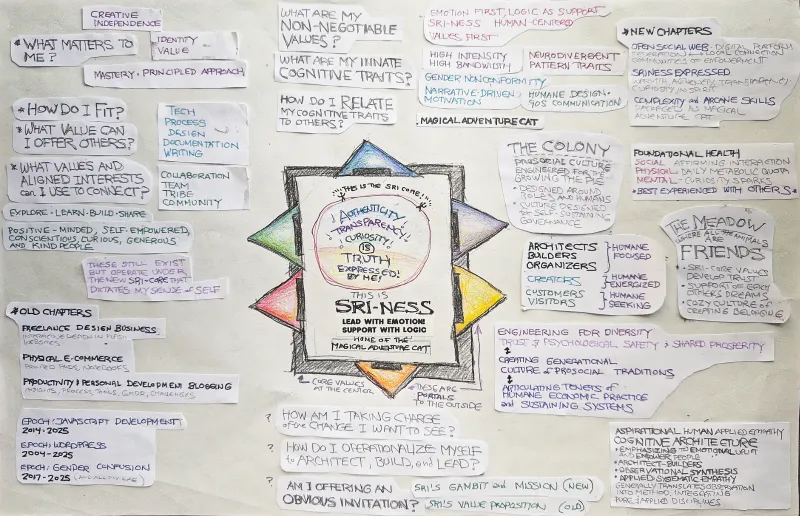 CREATIVE
INDEPENDENCE
*WHAT MATTERS TO
ME?
IDENTITY
VALUE
MASTERY · PRINCIPLED APPROACH
*HOW DO I FIT?
*WHAT VALUE CAN
I OFFER OTHERS?
*WHAT VALUES AND
ALIGNED INTERESTS
can I USE TO CONNECT?
TECH
PROCESS
DESIGN
DOCUMENTATION
WRITING
COLLABORATION
TEAM
TRIBE
COMMUNITY
EXPLORE · LEARN · BUILD · SHARE
POSITIVE-MINDED, SELF-EMPOWERED,
CONSCIENTIOUS, CURIOUS, GENEROUS
AND KIND PEOPLE.
THESE STILL EXIST
BUT OPERATE UNDER
THE NEW SRI-CORE THAT
DICTATES MY SENSE of SELF
*OLD CHAPTERS
FREELANCE DESIGN BUSINESS
PHYSICAL E-COMMERCE
PRODUCTIVITY & PERSONAL DEVELOPMENT BLOGGING
EPOCH: JAVASCRIPT DEVELOPMENT
2014-2025
EPOCH: WORDPRESS
2004-2025
EPOCH: GENDER CONFUSION
2017-2025
WHAT ARE MY
NON-NEGOTIABLE
VALUES?
WHAT ARE MY INNATE
COGNITIVE TRAITS?
HOW DO I RELATE
MY COGNITIVE TRAITS
TO OTHERS?
EMOTION FIRST, LOGIC AS SUPPORT
SRI-NESS HUMAN-CENTERED
VALUES FIRST
HIGH INTENSITY
HIGH BANDWIDTH
NEURODIVERGENT
PATTERN TRAITS
GENDER NONCONFORMITY
NARRATIVE-DRIVEN
MOTIVATION
HUMANE DESIGN
90S COMMUNICATION
MAGICAL ADVENTURE CAT
THIS IS THE SRI CORE!
AUTHENTICITY
TRANSPARENCY
CURIOSITY
IS
TRUTH
EXPRESSED
BY ME!
THIS IS
SRI-NESS
LEAD WITH EMOTION!
SUPPORT WITH LOGIC!
HOME OF THE
MAGICAL ADVENTURE CAT
CORE VALUES
AT THE CENTER
THESE ARE
PORTALS
TO THE OUTSIDE
? HOW AM I TAKING CHARGE
of the CHANGE I WANT TO SEE?
? HOW DO I OPERATIONALIZE MYSELF
to ARCHITECT, BUILD, and LEAD?
? AM I OFFERING AN
OBVIOUS INVITATION?
SRI'S GAMBIT and MISSION (NEW)
SRI'S VALUE PROPOSITION (OLD)
*NEW CHAPTERS
OPEN SOCIAL WEB
COMMUNITIES OF EMPOWERMENT
SRINESS EXPRESSED
COMPLEXITY and ARCANE SKILLS
ADVENTURE CAT
THE COLONY
PROSOCIAL CULTURE
ENGINEERED FOR THE
GROWING TRIBE
• DESIGNED AROUND
ROLES and HUMANS
• CULTURE DESIGNED
for SELF-SUSTAINING
GOVERNANCE
FOUNDATIONAL HEALTH
SOCIAL AFFIRMING INTERACTION
PHYSICAL DAILY METABOLIC QUOTA
MENTAL CURIOSITY SPARKS
*BEST EXPERIENCED WITH OTHERS*
THE MEADOW
WHERE ALL THE ANIMALS
ARE
FRIENDS
• SRI-CORE VALUES
DEVELOP TRUST
• SUPPORT OF EACH
OTHERS DREAMS
• COZY CULTURE OF
CREATING BELONGING
ARCHITECTS
BUILDERS
ORGANIZERS
HUMANE
FOCUSED
CREATORS
HUMANE
ENERGIZED
CUSTOMERS
VISITORS
HUMANE
SEEKING
ENGINEERING FOR DIVERSITY
TRUST & PSYCHOLOGICAL SAFETY & SHARED PROSPERITY
CREATING GENERATIONAL
CULTURE of PROSOCIAL TRADITIONS
ARTICULATING TENETS OF
HUMANE ECONOMIC PRACTICE
and SUSTAINING SYSTEMS
ASPIRATIONAL HUMAN APPLIED EMPATHY
COGNITIVE ARCHITECTURE
• EMPHASIZING to EMOTIONAL UPLIFT
and EMPOWER PEOPLE
• ARCHITECT-BUILDERS
• OBSERVATIONAL SYNTHESIS
• APPLIED SYSTEMATIC EMPATHY
GENERALLY TRANSLATES OBSERVATION
INTO METHOD, INTEGRATING